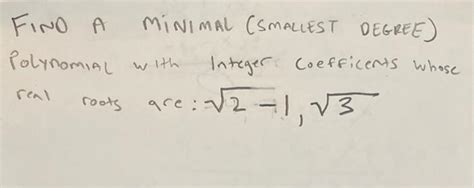 FIND A MINIMAL (SMALLEST DEGREE)
Polynomial with Integer Coefficents whose
real roots are: √2 - 1, √3